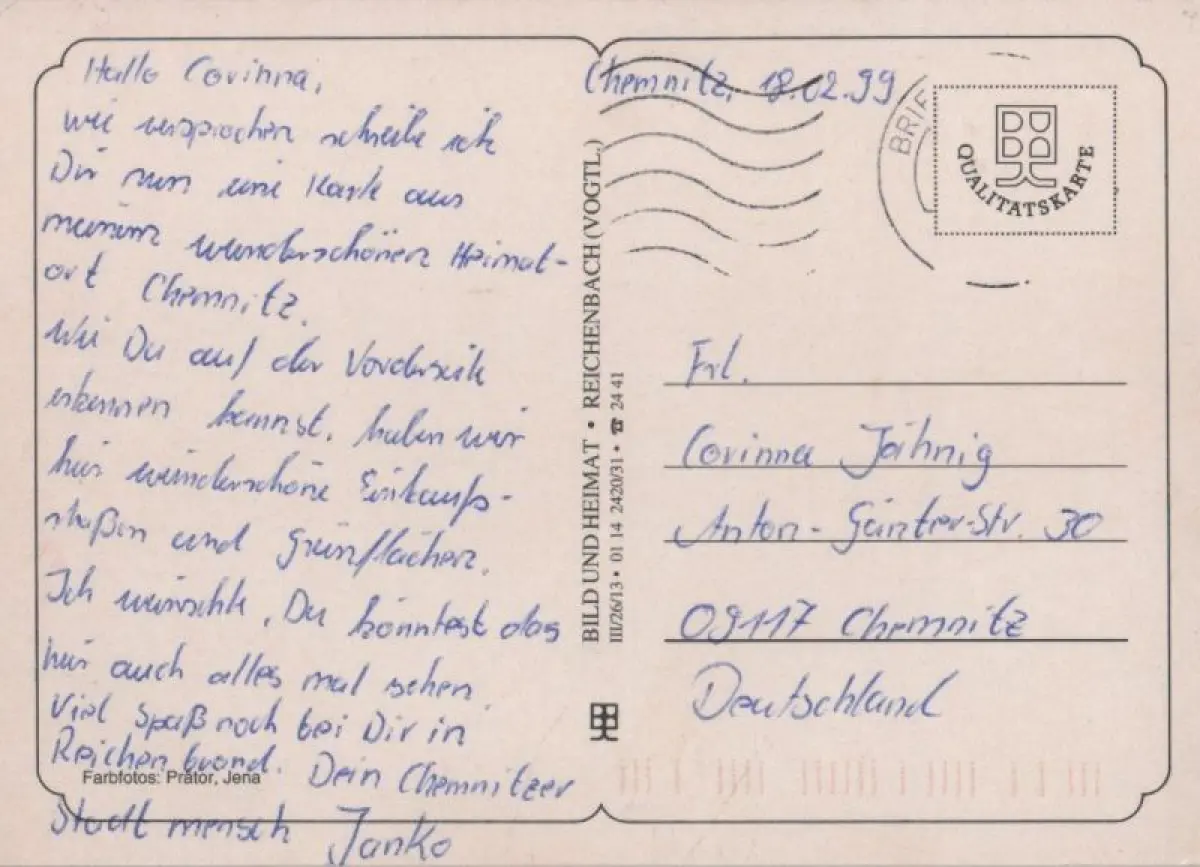 Hallo Corinna,
wie versprochen schreibe ich
Dir nun eine Karte aus
meinem wunderschönen Heimat-
ort Chemnitz.
Wie Du auf der Vorderseite
erkennen kannst, haben wir
hier wunderschöne Einkaufs-
staßen und Grünflächen.
Ich wünschte, Du könntest das
hier auch alles mal sehen.
Viel Spaß noch bei Dir in
Reichenbrand. Dein Chemnitzer
Stadtmensch Janko
Farbfotos: Prätor, Jena
BILD UND HEIMAT • REICHENBACH (VOGTL.)
III/26/13 • 01 14 2420/31 • ☎ 24 41
Chemnitz, 18.02.99
BRIEF
QUALITÄTSKARTE
Frl.
Corinna Jähnig
Anton-Günter-Str. 30
09117 Chemnitz
Deutschland